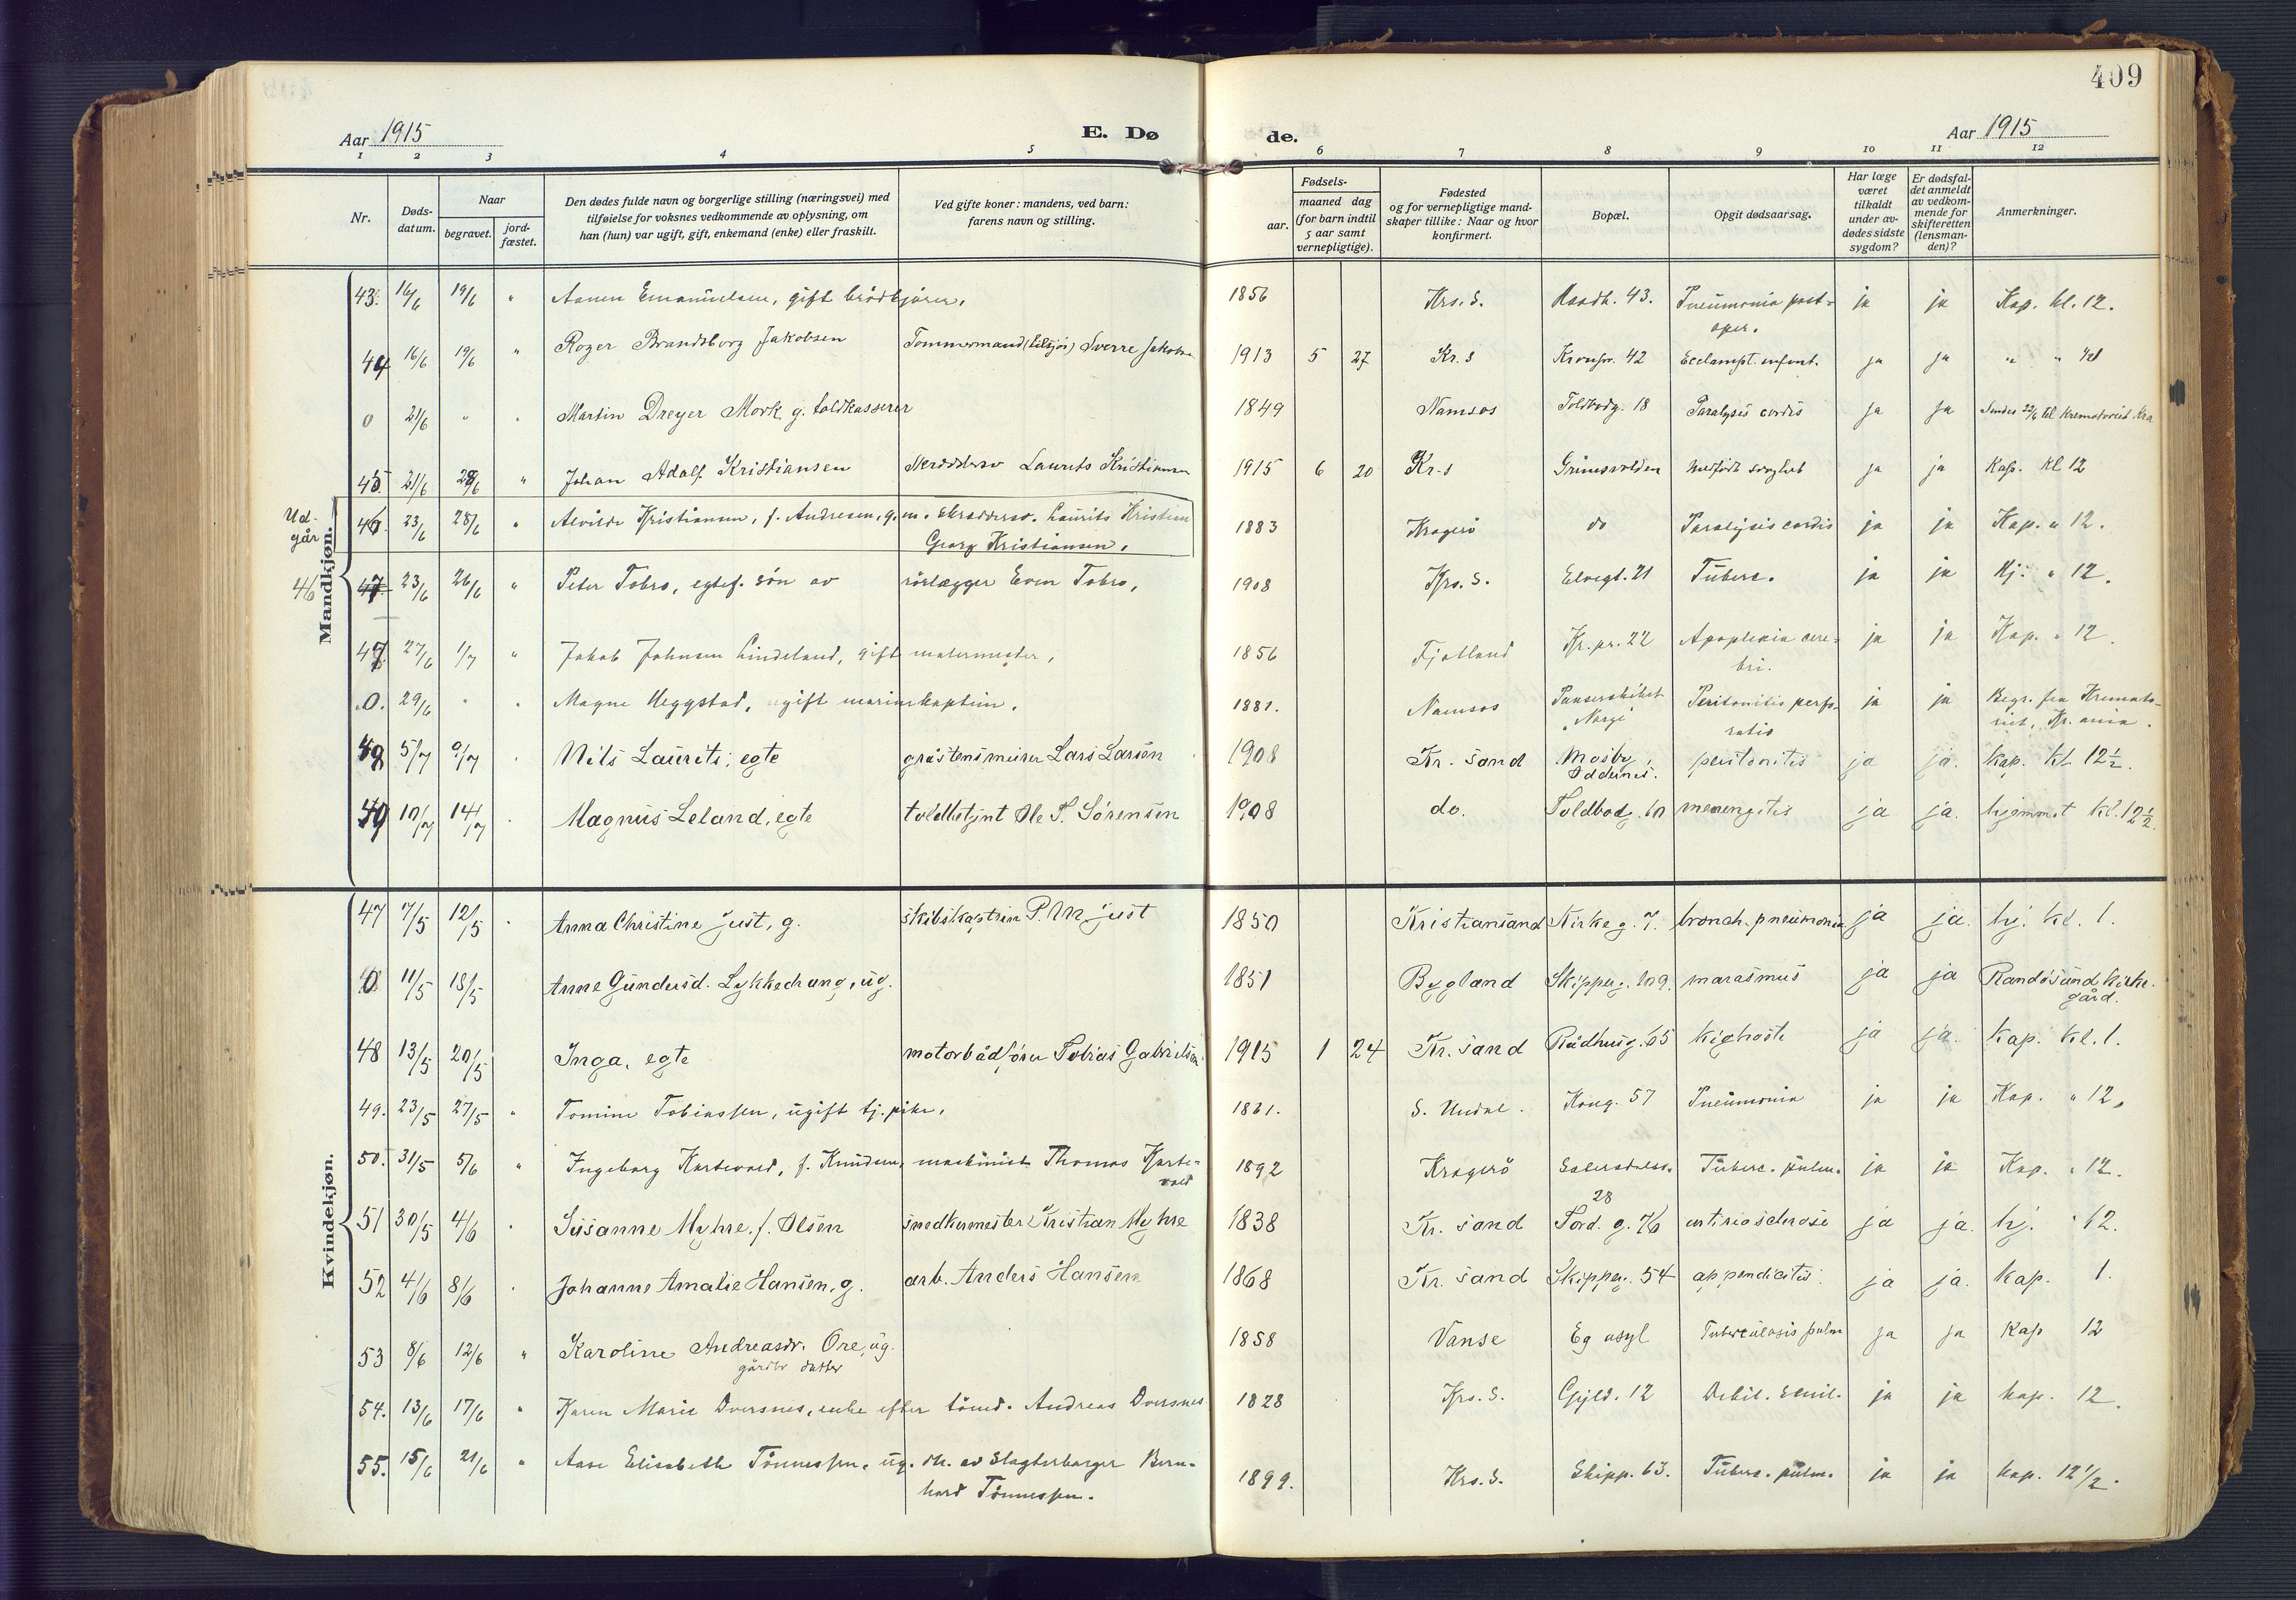 409
Aar 1915
E. Dø
de.
Aar 1915
1 2 3 4 5 6 7 8 9 10 11 12
Nr.
Døds-
datum.
Naar
begravet.
jord-
fæstet.
Den dødes fulde navn og borgerlige stilling (næringsvei) med
tilføielse for voksnes vedkommende av oplysning, om
han (hun) var ugift, gift, enkemand (enke) eller fraskilt.
Ved gifte koner: mandens, ved barn:
farens navn og stilling.
Fødsels-
aar.
maaned dag
(for barn indtil
5 aar samt
vernepligtige).
Fødested
og for vernepligtige mand-
skaper tillike: Naar og hvor
konfirmert.
Bopæl.
Opgit dødsaarsag.
Har læge
været
tilkaldt
under av-
dødes sidste
sygdom?
Er dødsfal-
det anmeldt
av vedkom-
mende for
skifteretten
(lensman-
den)?
Anmerkninger.
Mandkjøn.
43. 16/6 19/6 " Emanuelsen, gift brødkjører, 1856 Krs. S. 43. Pneumonia post- ja ja Kap. kl. 12.
oper.
44 16/6 19/6 " Roger Brandsborg Jakobsen Tømmermand Sverre Jakobsen 1913 5 27 Kr. S Kronpr. 42 Eclampt. infant. ja ja " "
0 21/6 " " Martin Dreyer Mork g. toldkasserer 1849 Namsos Toldbodg. 18 Paralysis cordis ja ja Sendes 22/6 til Krematoriet Kra
45 21/6 28/6 " Johan Adolf Kristiansen Laurits Kristiansen 1915 6 20 Kr-s Grimsvolden Medfødt svaghet ja ja Kap. kl 12
Ud-
går
46. 23/6 28/6 " Alvilde Kristiansen, f. Andresen, g. m. Skrædderso. Laurits Kristian 1883 Kragerö do Paralysis cordis ja ja Kap. " 12.
Georg Kristiansen.
46 47. 23/6 26/6 " Peter Tobro, egtef. søn av rørlægger Even Tobro, 1908 Krs. S. Elvegt. 21 Tuberc. ja ja Kj. " 12.
47. 27/6 1/7 " Jakob Johnsen Lindeland, gift malermester, 1856 Fjotland Kr. pr. 22 Apoplexia cere- ja ja Kap. " 12.
bri.
0. 29/6 " " Magne Heggstad, ugift marinekaptein. 1881. Namsos Panserskibet Peritonitis perfo- ja ja Begr. fra Kremato-
"Norge" ratio riet, Kr.ania.
48 5/7 9/7 Nils Laurits, egte gråstensmurer Lars Larsen 1908 Kr. sand Mosby, peritonitis ja ja. kap. kl 12½.
Oddernes.
49 10/7 14/7 Magnus Leland, egte toldbetjnt Ole T. Sørensen 1908 do. Toldbodg. 60 menengitis ja ja. hjemmet kl. 12½.
Kvindekjøn.
47 7/5 12/5 Anna Christine Just, g. skibskaptein P. M Just 1850 Kristiansand Kirkeg. 7. bronch. pneumonia ja ja. hj. kl. 1.
0 11/5 18/5 Anne Gundersd. Lykkedrang, ug. 1851 Bygland Skipperg. 109. marasmus ja ja Randøsund kirke-
gård.
48 13/5 20/5 Inga, egte motorbådfører Tobias Gabrielsen 1915 1 24 Kr. sand Rådhusg. 65 kighoste ja ja. kap. kl. 1.
49. 23/5 27/5 " Tomine Tobiassen, ugift tj.pike, 1861. S. Undal. Kong. 57 Pneumonia ja ja Kap. " 12,
50. 31/5 5/6 " Ingeborg Hartevold, f. Knudsen, maskinist Thomas Harte- 1892 Kragerö Tuberc. pulm. ja ja Kap. " 12.
vold 28
51 30/5 4/6 Susanne Myhre f. Olsen snedkermester Kristian Myhre 1838 Kr. sand Tord. g. 76 arteriosclerose ja ja. hj. " 12.
52 4/6 8/6 Johanne Amalie Hansen, g. arb. Anders Hansen 1868 Kr. sand Skipperg. 54 appendicitis ja ja. kap. 1.
53 8/6 12/6 " Karoline Andreasdr. Ore, ug. 1858 Vanse Eg asyl Tuberculosis pulm ja ja Kap 12
gårdbr datter
54. 13/6 17/6 " Karen Marie Dversnes, enke efter tömd. Andreas Dversnes 1828 Krs. S. Gyld. 12 Debil. senil. ja ja kap. 12.
55. 15/6 21/6 " Aase Elisabeth Tönnessen, ug. dt. av Slagterborger Bern- 1899. Krs. S. Skipp. 63. Tuberc. pulm. ja ja kap. 12 1/2.
hard Tönnessen.